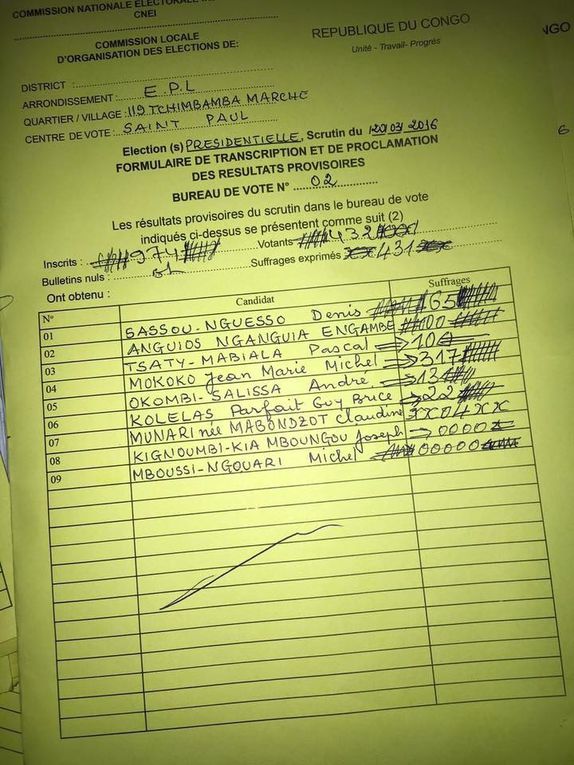 COMMISSION NATIONALE ELECTORALE
CNEI
COMMISSION LOCALE
D'ORGANISATION DES ELECTIONS DE:
REPUBLIQUE DU CONGO
Unité - Travail- Progrès
NGO
DISTRICT :
ARRONDISSEMENT : E.P.L
QUARTIER / VILLAGE : 119 TCHIMBAMBA MARCHE
CENTRE DE VOTE : SAINT PAUL
6
Election (s) PRESIDENTIELLE, Scrutin du 20/03/2016
FORMULAIRE DE TRANSCRIPTION ET DE PROCLAMATION
DES RESULTATS PROVISOIRES
BUREAU DE VOTE N° 02
Les résultats provisoires du scrutin dans le bureau de vote
indiqués ci-dessus se présentent comme suit (2)
Inscrits : 971 Votants 432
Bulletins nuls : 01 Suffrages exprimés 431
Ont obtenu :
N° Candidat Suffrages
01 SASSOU-NGUESSO Denis 65
02 ANGUIOS NGANGUIA ENGAMBE 00
03 TSATY-MABIALA Pascal
04 MOKOKO Jean Marie Michel 317
05 OKOMBI-SALISSA André 13
06 KOLELAS Parfait Guy Brice 22
07 MUNARI née MABONDZOT Claudine XX04XX
08 KIGNOUMBI-KIA MBOUNGOU Joseph 0000
09 MBOUSSI-NGOUARI Michel 00000